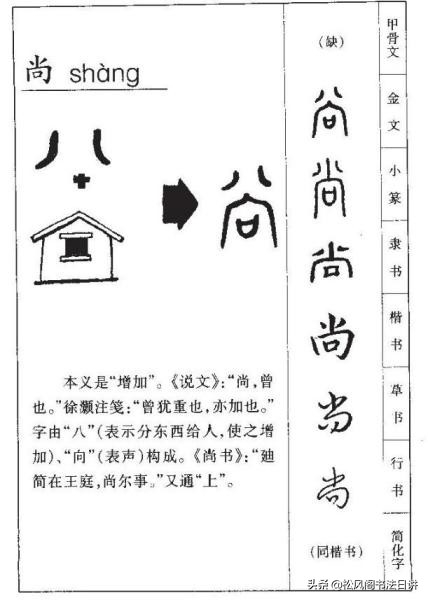 尚 shàng
八
尚
本义是“增加”。《说文》：“尚，曾
也。”徐灏注笺：“曾犹重也，亦加也。”
字由“八”（表示分东西给人，使之增
加）、“向”（表声）构成。《尚书》：“廸
简在王庭，尚尔事。”又通“上”。
（缺）
尚
尚
尚
尚
尚
尚
（同楷书）
甲骨文
金文
小篆
隶书
楷书
草书
行书
简化字
头条@松风阁书法日讲